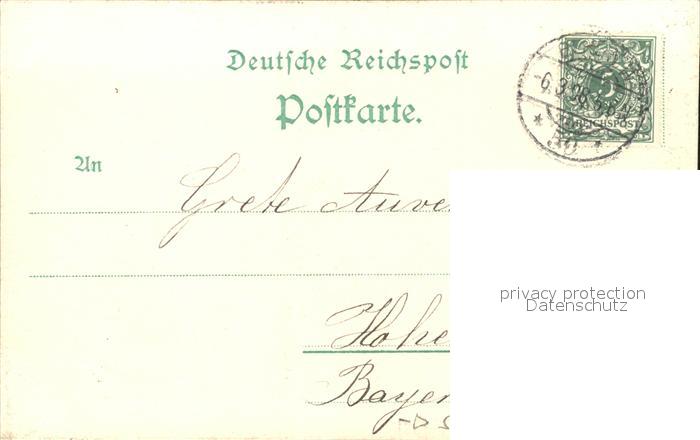 Deutsche Reichspost
Postkarte.
5
REICHSPOST
-6.3.98.5-6N
An
Grete Auve
privacy protection
Datenschutz
Hohe
Bayer